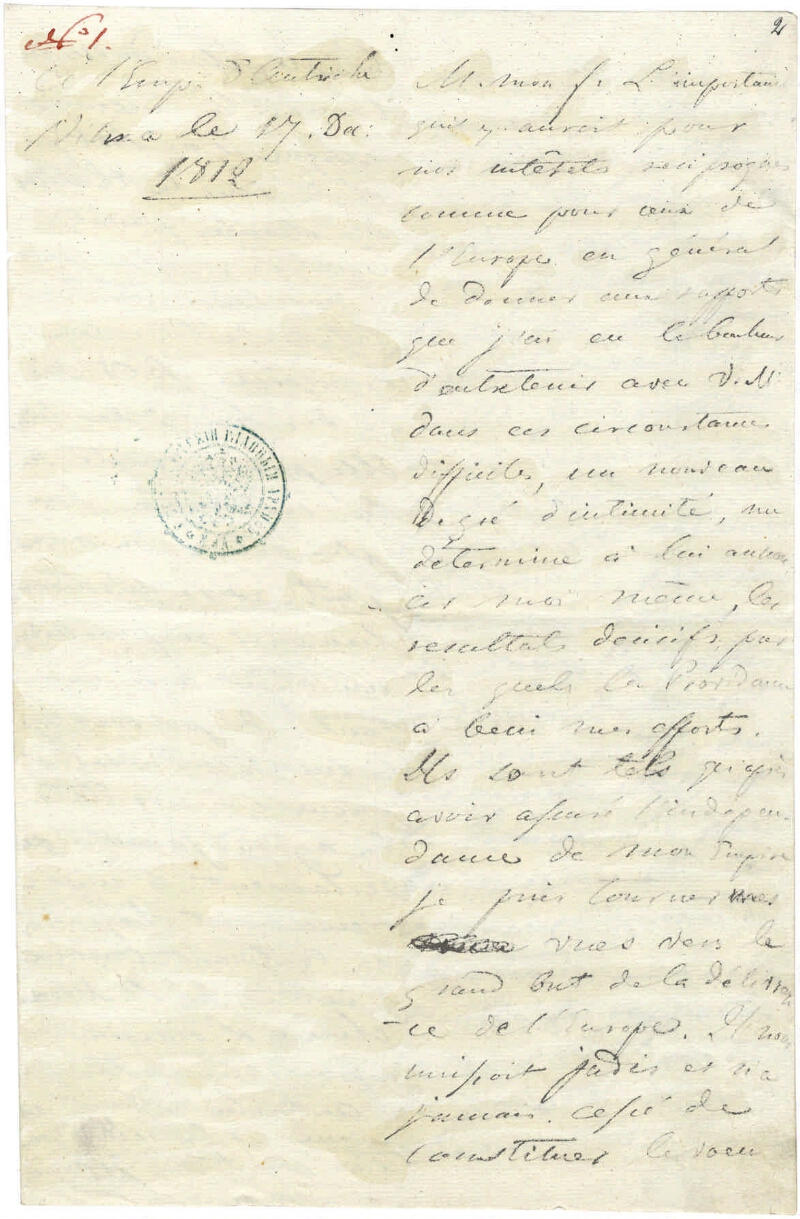 № 1.
2
à l'Emp. d'Autriche
Vilna le 17. Dec:
1812
M. mon f. L'importance
qu'il y auroit pour
nos intérêts reciproques
comme pour ceux de
l'Europe en général
de donner aux rapports
que j'ai eu le bonheur
d'entretenir avec V. M.
dans ces circonstances
difficiles, un nouveau
degré d'intimité, me
détermine à lui annon
cer moi même, les
resultats decisifs, par
les quels la Providence
a beni mes efforts.
Ils sont tels qu'après
avoir assuré l'indépen-
dance de mon Empire
je puis tourner mes
vues vers le
grand but de la délivran
-ce de l'Europe. Il nous
unissoit jadis et n'a
jamais cessé de
constituer le voeu